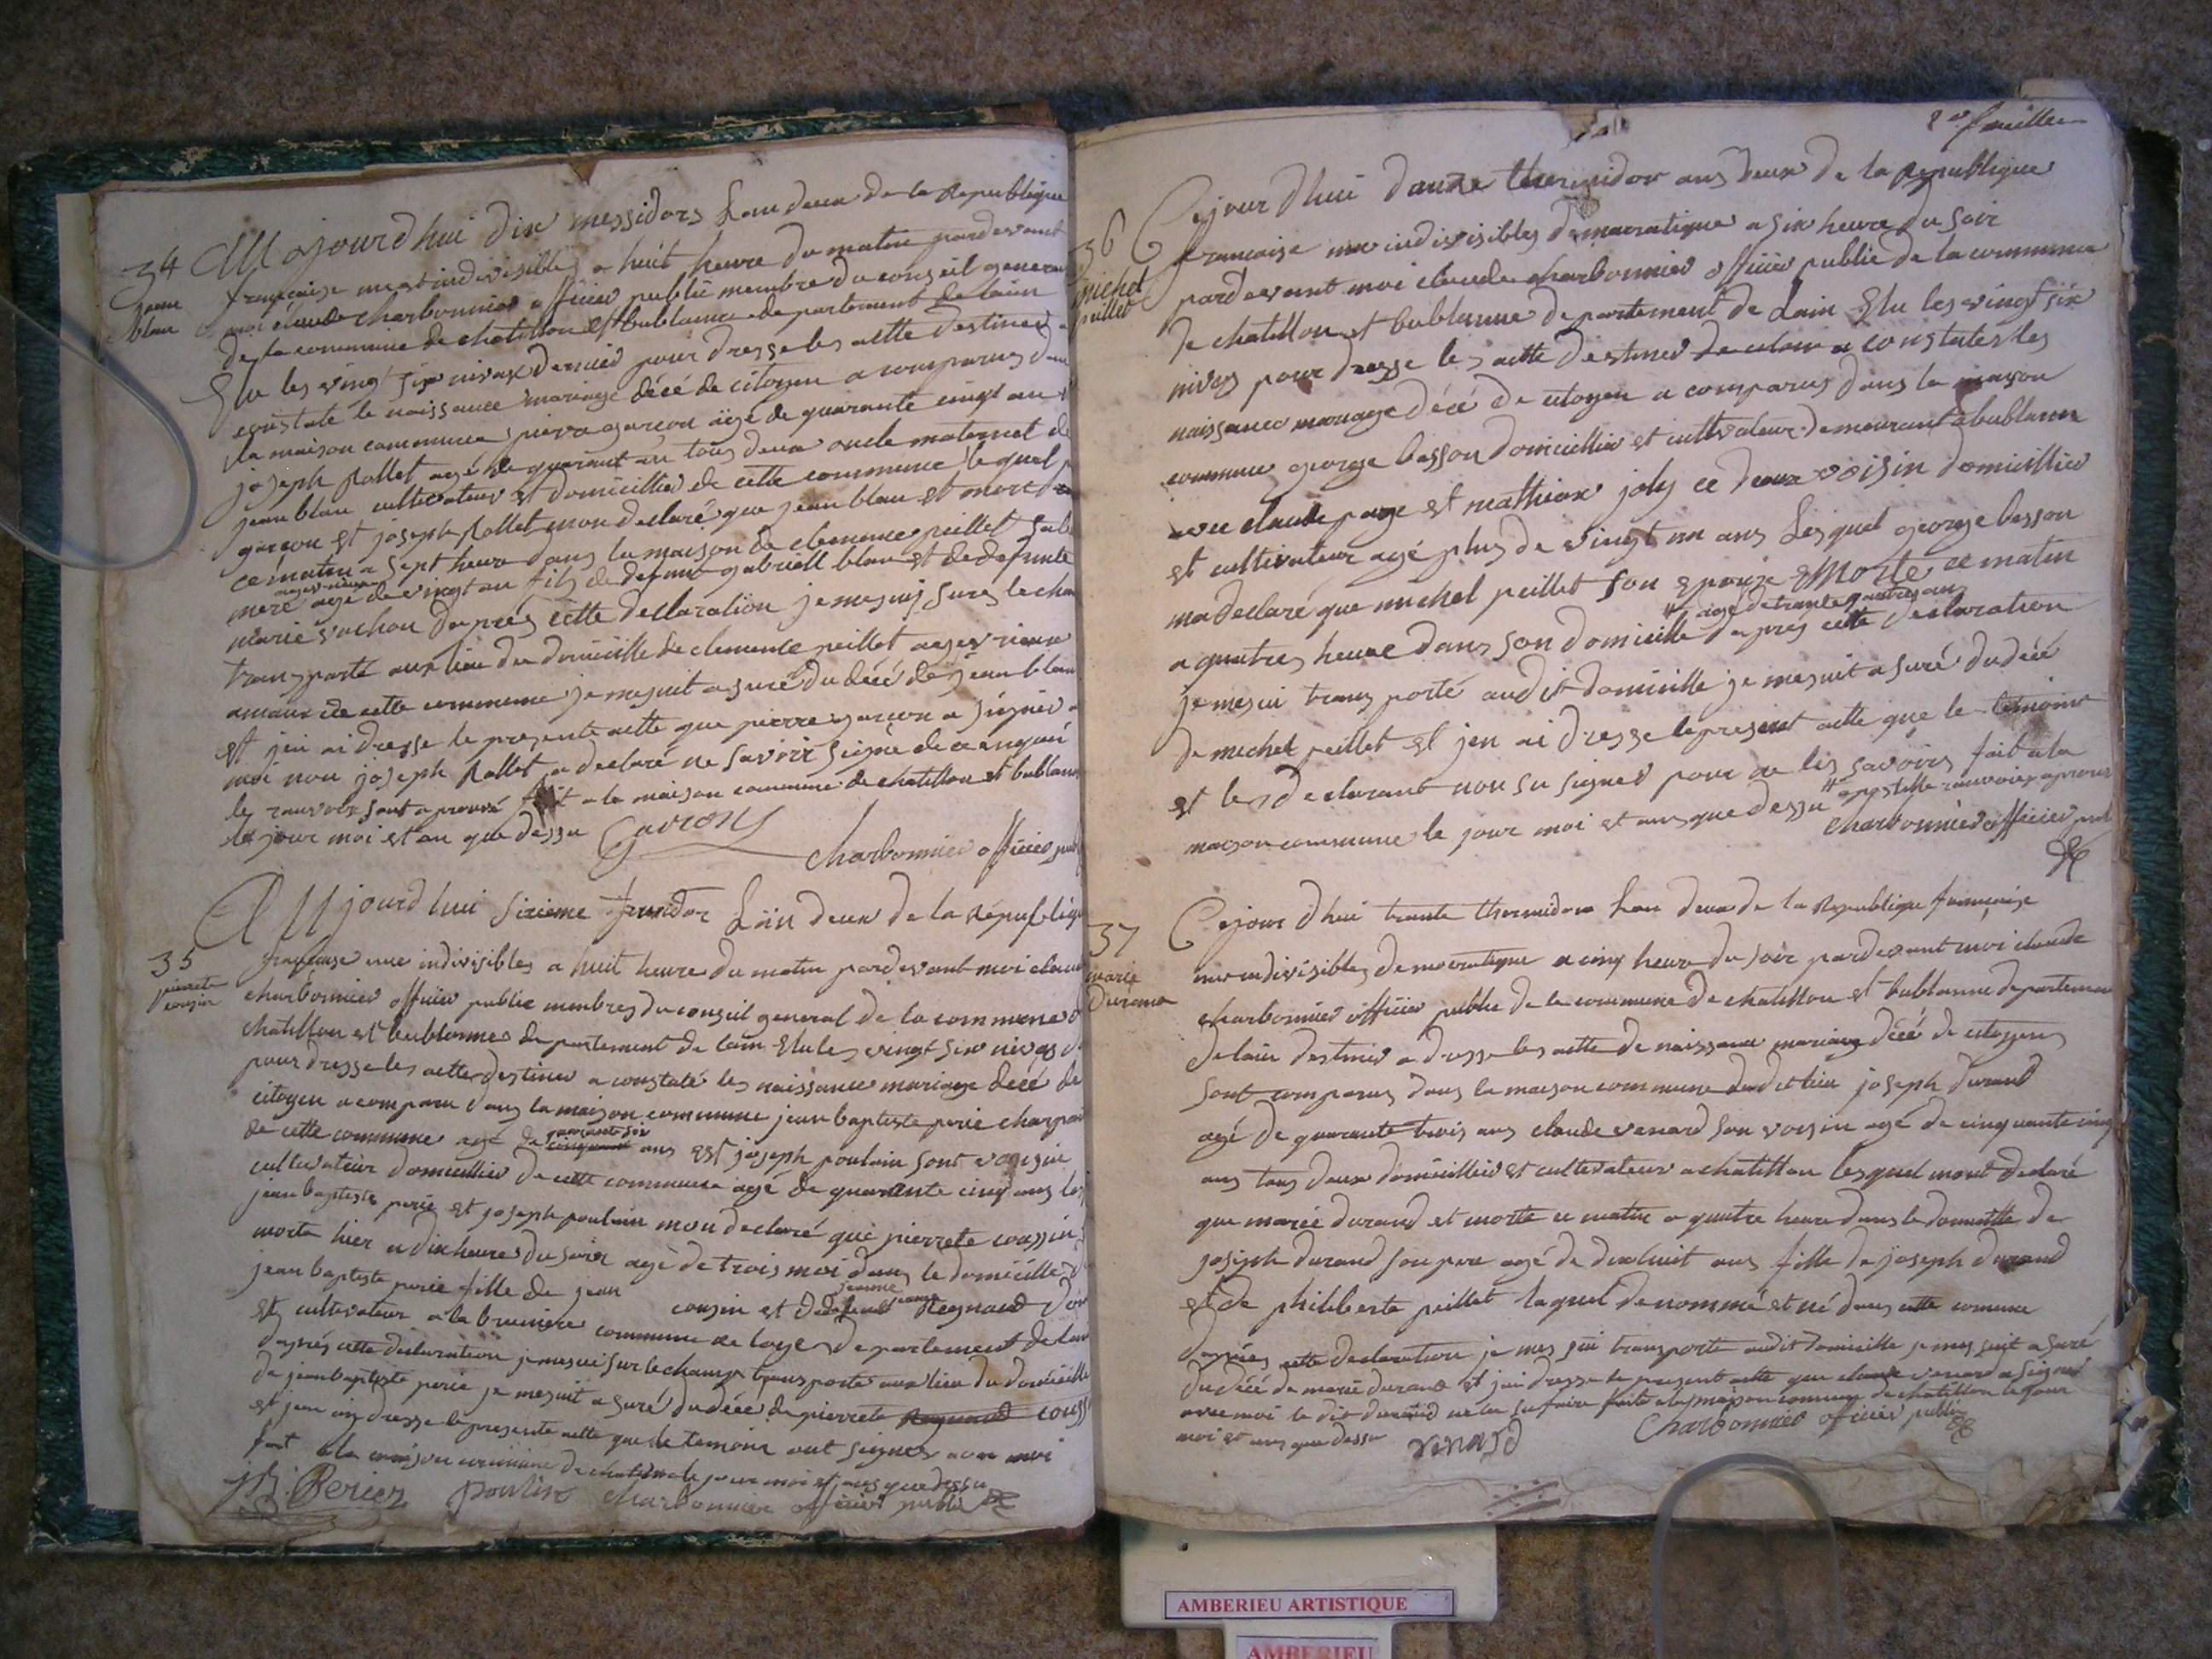 34
jean
blan
Au jourdhui dix messidors Lan deux de la Republique
française une et indivisibles a huit heure du matin pardevant
moi claude charbonnier officier public membre du conseil general
de la commune de chatillon est bublanne departement de lain
Elu les vingt six nivose dernier pour dresse les actte destines
constate le naissance mariage décé de citoyen a comparus dans
la maison commune piere garcon agé de quarante cinqt an
joseph Rollet agé de quarant an tous deux oncle maternel de
jean blan cultivateur est domicillier de cette commune le quel
garcon est joseph Rollet mon declaré que jean blan est mort
ce matin a sept heure dans la maison de clemence peillet
mere agé de vingt an fils de defunt gabriell blan est de defunte
marie vachon daprés cette declaration je me suis sures le cham
transporté aux lieu du domicille de clemence peillet
de cette commune je me suit asuré du décé de jean blan
est jen ai dresse le presente actte que pierre garcon a signier
moi non joseph Rollet a declaré ne savoir signé de ce enquri
les renvoir sont aprouvé fait a la maison commune de chatillon est bublanne
le jour moi est an que dessu Garcon
charbonnier officier publ
35
pierrete
cousin
Au jourdhui sixieme Lan deux de la républiqu
française une indivisibles a huit heure du matin pardevant moi claud
charbonnier officier public membres du conseil general de la commune d
chatillon est bublanne departement de lain Elu les vingt six nivos d
pour dresse les actte destiner a constaté les naissance mariage décé de
citoyen a comparu dans la maison commune jean baptiste perie charpan
de cette commune agé de quarante six ans est joseph poulain sont voisin
cultivateur domicillier de cette commune agé de quarante cinq ans les
jean baptiste perie est joseph poulain mon declaré que pierrete coussin
morte hier a dix heures du soir agé de trois moi dans le domicille d
jean baptiste perie fille de jean cousin est de jeanne Regnaud
est cultivateur a la bruniere commune de loye departement de lain
daprés cette declaration je me sui sur le champ transporté aux lieu du domicille
de jean baptiste perie je me suit asuré du décé de pierrete Regnaud couss
est jen ai dresse le presente actte que le temoin ont signer avec moi
fait a la maison commune de chatillon le jour moi et ans que dessu
jB. Perier poulin charbonnier officier public
8me feuillee
36
michel
peillet
Cejour dhui douze thermidor ans deux de la Republique
francaise une indivisibles democratique a six heure du soir
pardevant moi claude charbonnier officier public de la commune
de chatillon est bublanne departement de Lain Elu les vingt six
nivos pour dresse les actte destiner de celair a constates les
naissance mariage décé de citoyen a comparus dans la maison
commune george basson domicillier est cultivateur demeurant a bublanne
avec claude page est mathieux joly ce deux voisin domicillier
est cultivateur agé plus de vingt un ans Lesquel george basson
ma declaré que michel peillet son epouze est Morte ce matin
a quatres heure dans son domicille agé de trante quatres an daprés cette declaration
je me sui transporté audit domicille je me suit asuré du décé
de michel peillet est jen ai dresse le present actte que le temoint
est les declarant non su signer pour ne les savoirs fait a la
maison commune le jour moi est ans que dessu apostille renvoier aprouvé
charbonnier officier publ
37
marie
Durand
Cejour dhui trante thermidore Lan deux de la Republique françaize
une indivisibles democratique a cinq heure du soir pardevant moi claude
charbonnier officier public de la commune de chatillon est bublanne departemen
de lain destiner a dresse les actte de naissance mariage décé de citoyens
sont comparus dans la maison commune dudit lieu joseph durand
agé de quarante trois ans claude venard son voisin agé de cinquante cinq
ans tous deux domicillier est cultivateur a chatillon lesquel mont declaré
que marie durand est morte ce matin a quatre heure dans le domicille de
joseph durand son pere agé de dix huit ans fille de joseph durand
est de philiberte peillet laquel denommé est né dans cette comune
daprés cette declaration je mes sui transporté audit domicille je mes suit asuré
du décé de marie durand est jai dresse le present actte que claude venard a signer
avec moi le dit durand ne la su faire faite a la maison commune de chatillon le jour
moi et ans que dessu venard charbonnier officier public
AMBERIEU ARTISTIQUE
AMBERIEU